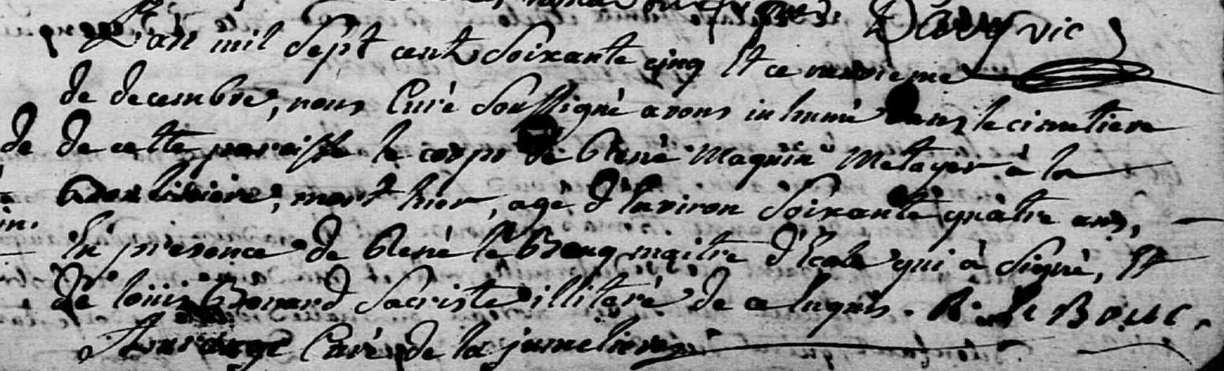 L'an mil Sept cent Soixante cinq Et ce
de decembre, nous Curé Soussigné avons inhumé dans le cimetiere
de de cette paroisse le corps de René Maquin Metayer à la
mort hier, agé d'Environ Soixante quatre ans,
in.
En presence de René le Bouq maitre d'Ecole qui à Signé, Et
de loüis Bonard Sacriste illitaré de ce R. le Bouc.
Curé de la jumeliere